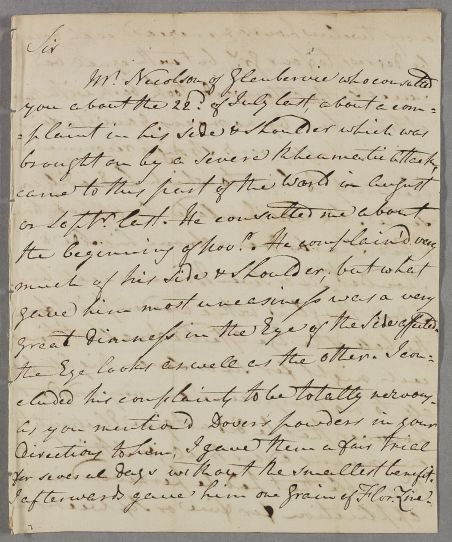 Sir
Mr. Nicolson of Glenbervie who consulted
you about the 22d. of July last about a com-
-plaint in his side & shoulder which was
brought on by a severe Rheumatic attack,
came to this part of the World in August
or Septr. last. He consulted me about
the beginning of Novr. He complain'd very
much of his side & shoulder, but what
gave him most uneasiness was a very
great Dimness in the Eye of the Side affected.
the Eye looks as well as the other. I con-
cluded his complaints to be totally nervous.
as you mention'd Dovers powders in your
Directions to him, I gave them a fair trial
for several days without the smallest benefit.
I afterwards gave him one Grain of Flor. Zinc.